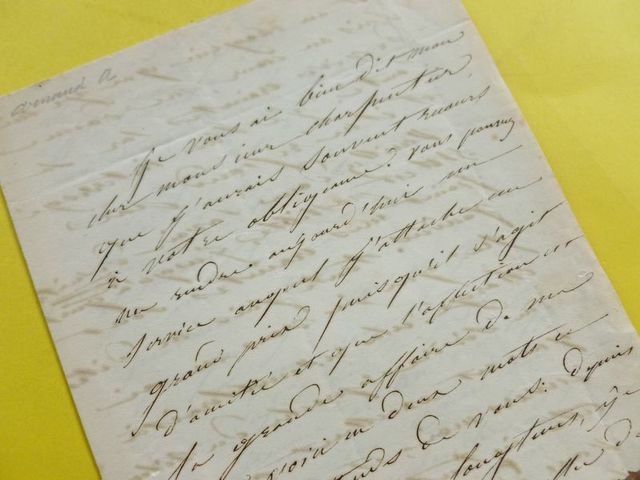 arnaud a
je vous ai bien dit mon
cher monsieur charpentier,
que j'aurais souvent recours
à votre obligeance. vous pouvez
me rendre aujourd'hui un
service auquel j'attache un
grand prix puisqu'il s'agit
d'amitié et que l'affection est
la grande affaire de ma
en deux mots ce
de vous. depuis
longtems, je
de